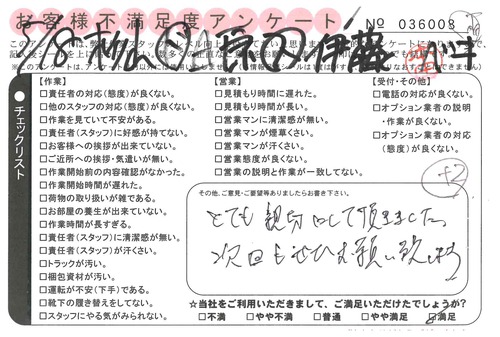 お客様不満足度アンケート
№ 036008
チェックリスト
【作業】
□責任者の対応(態度)が良くない。
□他のスタッフの対応(態度)が良くない。
□作業を見ていて不安がある。
□責任者(スタッフ)に好感が持てない。
□お客様への挨拶が出来ていない。
□ご近所への挨拶・気遣いが無い。
□作業開始前の内容確認がなかった。
□作業開始時間が遅れた。
□荷物の取り扱いが雑である。
□お部屋の養生が出来ていない。
□作業時間が長すぎる。
□責任者(スタッフ)に清潔感が無い。
□責任者(スタッフ)が汗くさい。
□トラックが汚い。
□梱包資材が汚い。
□運転が不安(下手)である。
□靴下の履き替えをしてない。
□スタッフにやる気がみられない。
【営業】
□見積もり時間に遅れた。
□見積もり時間が長い。
□営業マンに清潔感が無い。
□営業マンが煙草くさい。
□営業マンが汗くさい。
□営業態度が良くない。
□営業の説明と作業が一致してない。
【受付・その他】
□電話の対応が良くない。
□オプション業者の説明
・作業が良くない。
□オプション業者の対応
(態度)が良くない。
その他、ご意見・ご要望等ありましたらお書き下さい。
とても親切にして頂きました。
次回もぜひお願い致します
☆当社をご利用いただきまして、ご満足いただけたでしょうか?
□不満 □やや不満 □普通 □やや満足 □満足